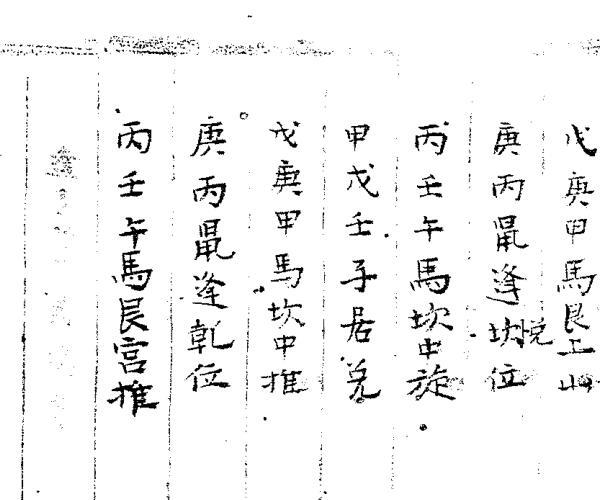 戊庚甲馬艮上山
庚丙鼠逢坎位
悦
丙壬午馬坎中旋
甲戊壬子居兌
戊庚甲馬坎中推
庚丙鼠逢乾位
丙壬午馬艮宮推